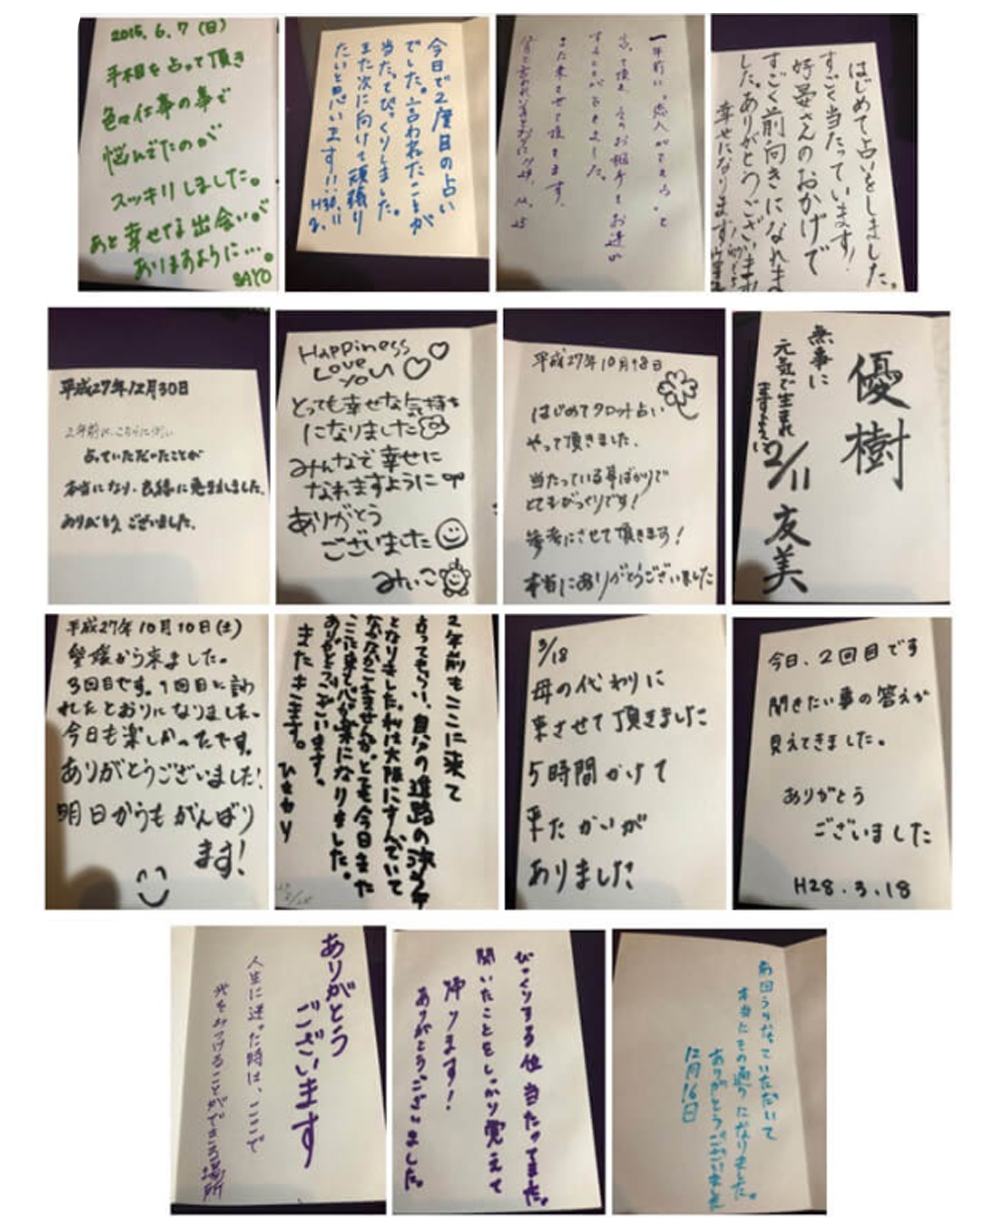 2015.6.7(日)
手相を占って頂き
色々仕事の事で
悩んでたのが
スッキリしました。
あと幸せな出会いが
ありますように…。
SAYO
今日で2度目の占い
でした。言われたことが
当たってびっくりしました
また次に向けて頑張り
たいと思います!!
一年前に、恋人ができると
占って頂き、そのお相手とお逢い
することができました。
また来させて頂きます。
はじめて占いをしました。
すごく当たっています!
好晏さんのおかげで
すごく前向きになれま
した。ありがとうございます
幸せになります
平成27年12月30日
2年前に、こちらに伺い
占っていただいたことが
本当になり、良縁に恵まれました。
ありがとうございました。
Happiness
Love
you
とっても幸せな気持ち
になりました
みんなで幸せに
なれますように
ありがとう
ございました
みいこ
平成27年10月18日
はじめてタロット占い
やって頂きました。
当たっている事ばかりで
とてもびっくりです!
参考にさせて頂きます!
本当にありがとうございました
優樹
無事に
元気で生まれ
ますように
2/11
友美
平成27年10月10日(土)
愛媛から来ました。
3回目です。1回目に言わ
れたとおりになりました。
今日も楽しかったです。
ありがとうございました!
明日からもがんばり
ます!
2年前もここに来て
占ってもらい、自分の進路の決め手
となりました。私は大阪にすんでいて
なかなかこませんが、とても今日また
ここに来て心が楽になりました。
ありがとうございます。
またきます。
3/18
母の代わりに
来させて頂きました
5時間かけて
来たかいが
ありました
今日、2回目です
聞きたい事の答えが
見えてきました。
ありがとう
ございました
H28.3.18
ありがとう
ございます
人生に迷った時は、ここで
光をみつけることができる場所
びっくりする位当たってました。
聞いたことをしっかり覚えて
帰ります!
ありがとうございました。
前回うらなっていただいて
本当にその通りになりました。
ありがとうございました
12月16日